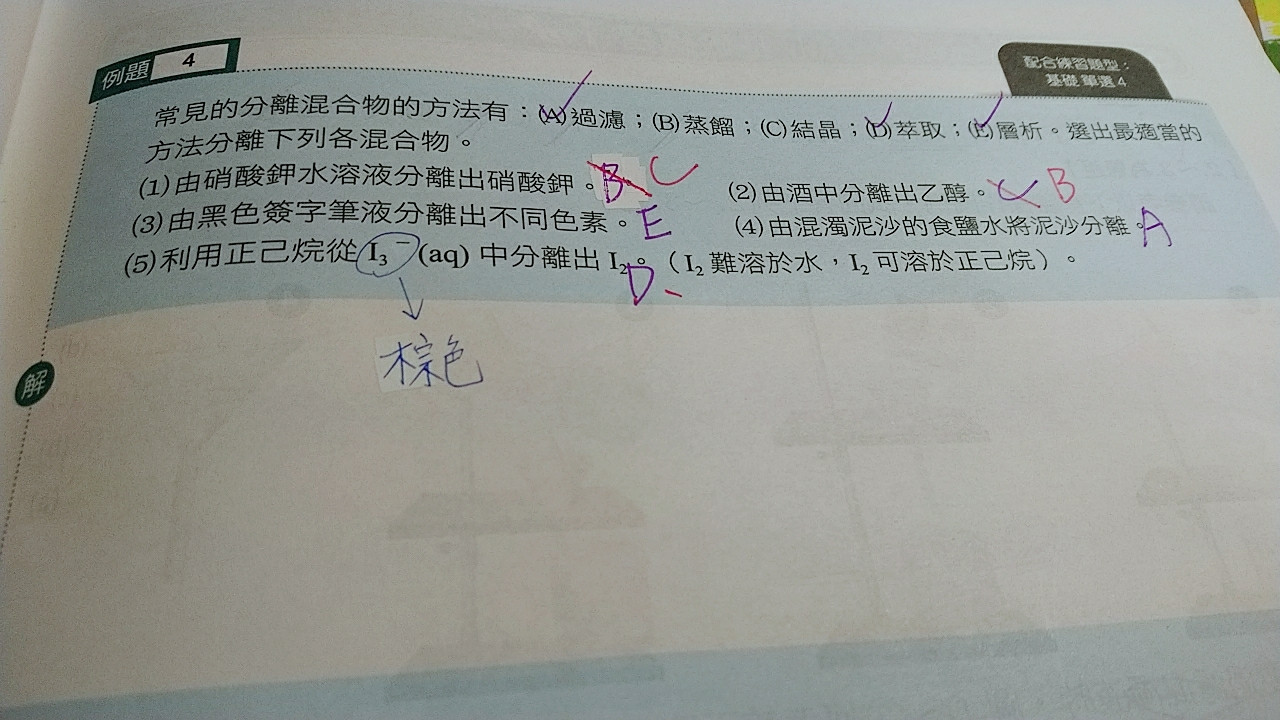 例題 4
配合練習題型：
基礎 單選 4
常見的分離混合物的方法有：(A)過濾；(B)蒸餾；(C)結晶；(D)萃取；(E)層析。選出最適當的
方法分離下列各混合物。
(1)由硝酸鉀水溶液分離出硝酸鉀。B C
(2)由酒中分離出乙醇。C B
(3)由黑色簽字筆液分離出不同色素。E
(4)由混濁泥沙的食鹽水將泥沙分離。A
(5)利用正己烷從 I₃⁻ (aq) 中分離出 I₂。（I₂ 難溶於水，I₂ 可溶於正己烷）。
D
棕色
解